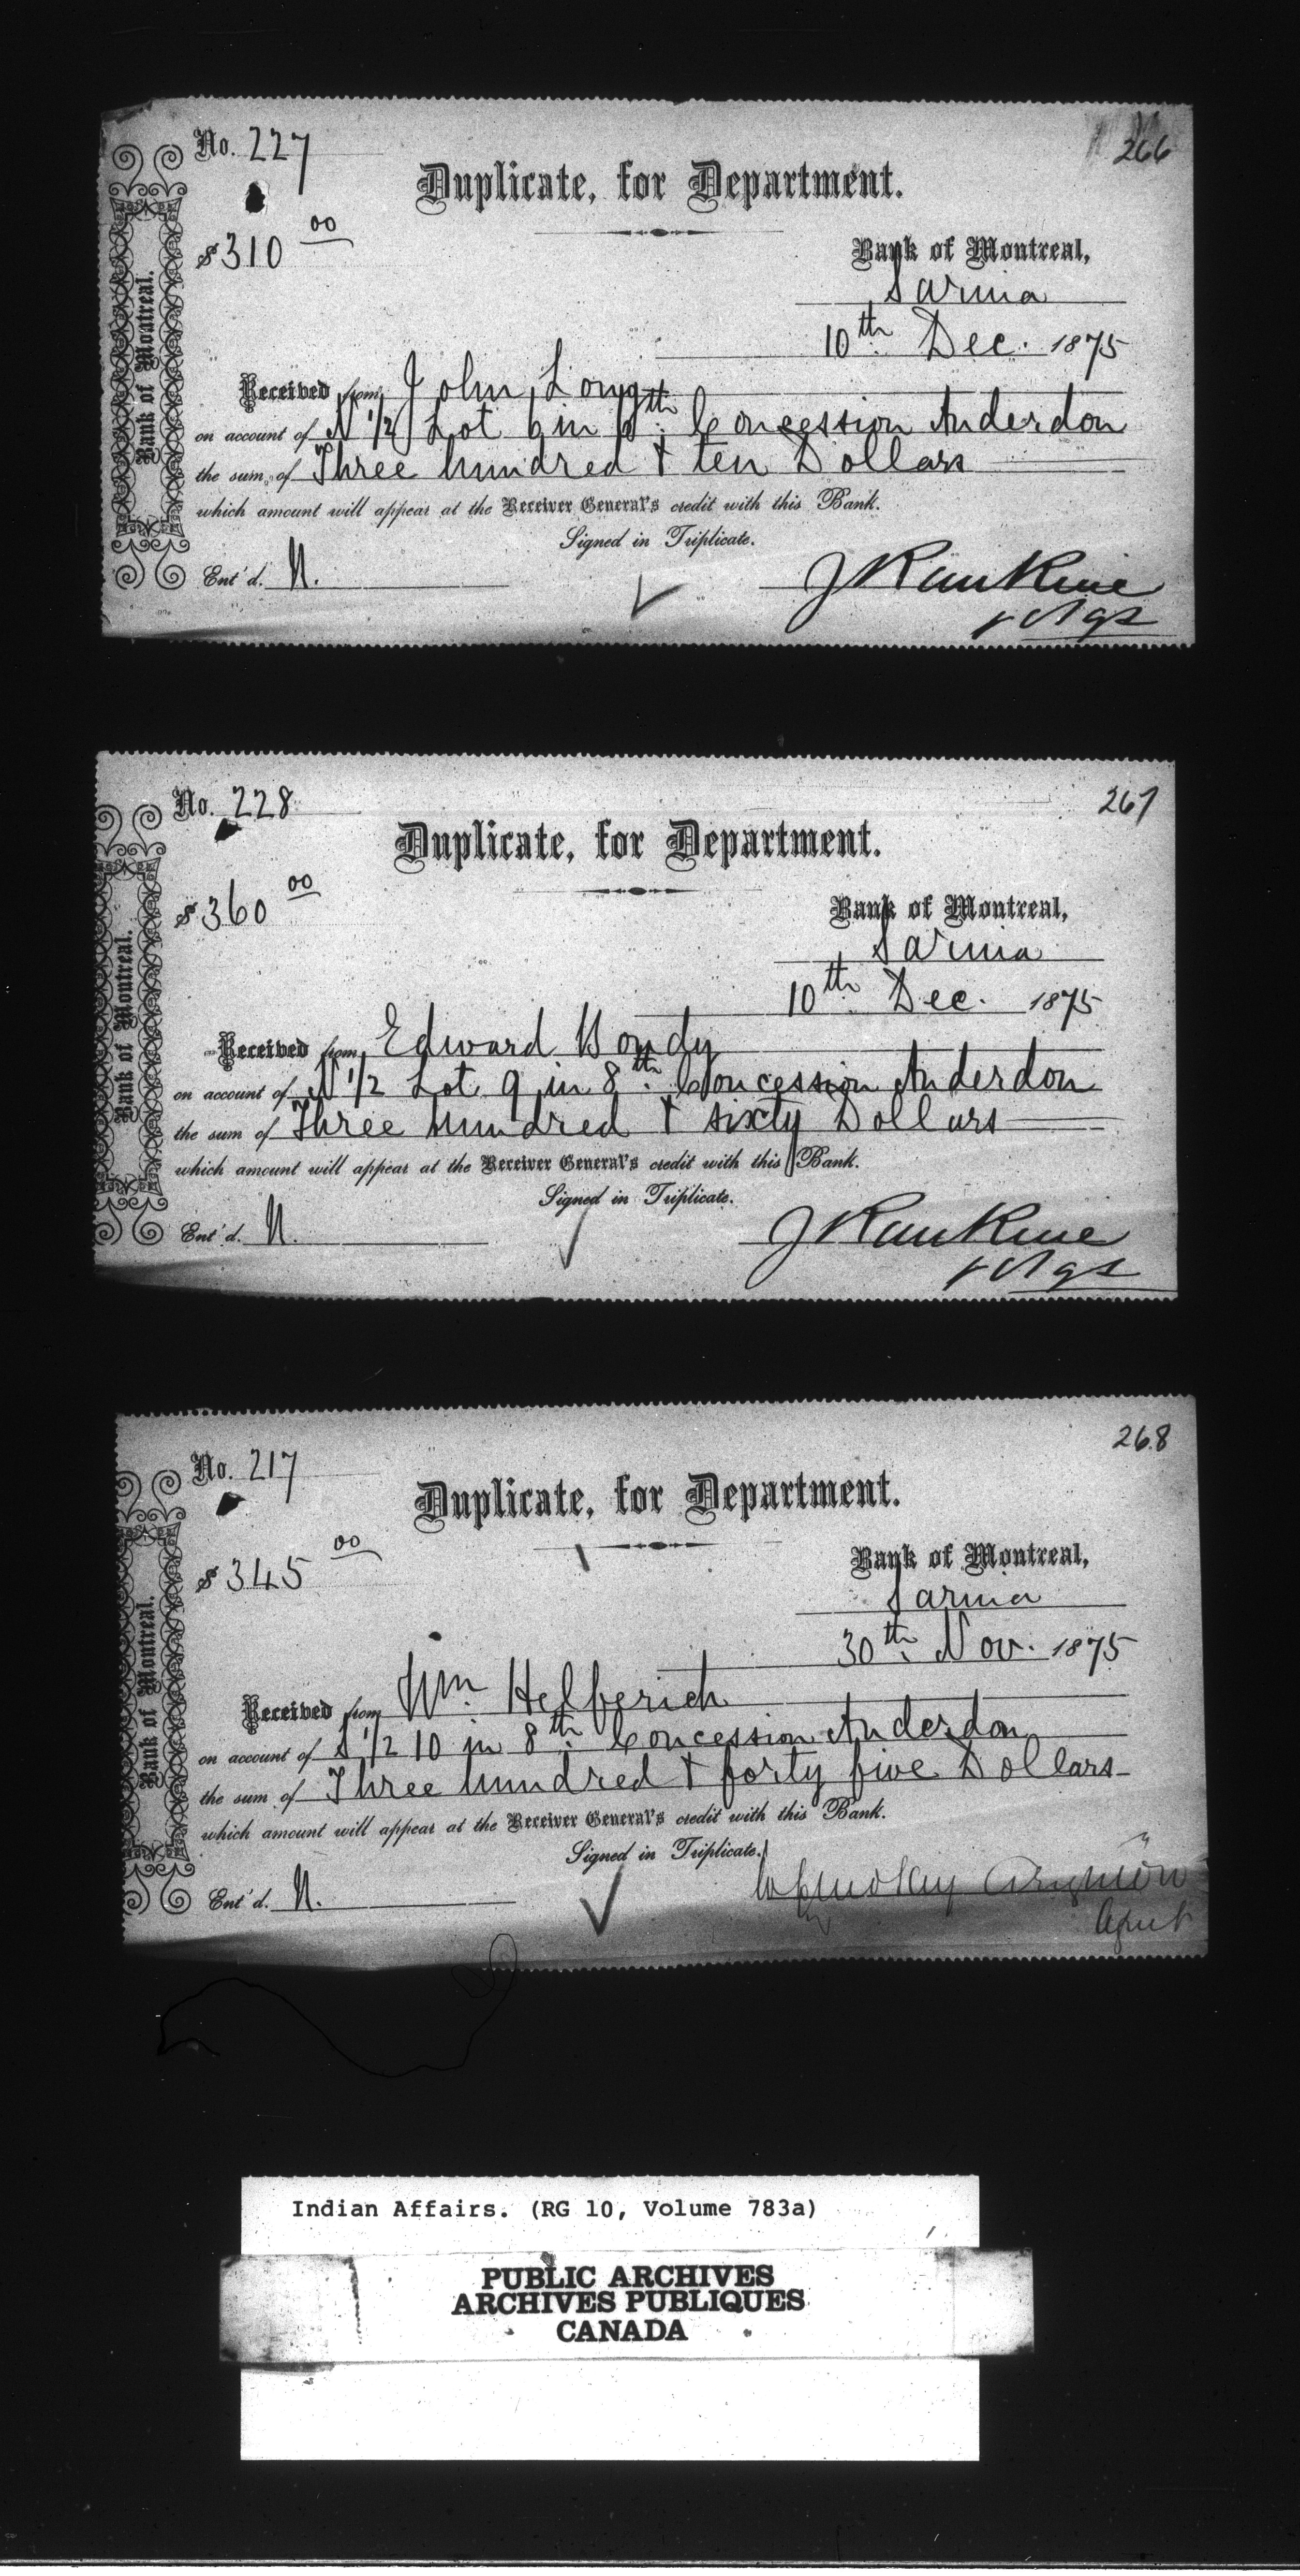 No. 227
266
Duplicate, for Department.
$310 00
Bank of Montreal,
Sarnia
10th Dec. 1875
Received from John Long
on account of N 1/2 Lot 6 in Concession Anderdon
the sum of Three hundred & ten Dollars
which amount will appear at the Receiver General's credit with this Bank.
Signed in Triplicate.
Ent'd. N.
J Rankine
Bank of Montreal.
No. 228
267
Duplicate, for Department.
$360 00
Bank of Montreal,
Sarnia
10th Dec. 1875
Received from Edward Bondy
on account of N 1/2 Lot 9 in 8th Concession Anderdon
the sum of Three hundred & sixty Dollars
which amount will appear at the Receiver General's credit with this Bank.
Signed in Triplicate.
Ent'd. N.
J Rankine
Bank of Montreal.
No. 217
268
Duplicate, for Department.
$345 00
Bank of Montreal,
Sarnia
30th Nov. 1875
Received from Wm. Helferich
on account of S 1/2 10 in 8th Concession Anderdon
the sum of Three hundred & forty five Dollars
which amount will appear at the Receiver General's credit with this Bank.
Signed in Triplicate.
Ent'd. N.
Agent
Bank of Montreal.
Indian Affairs. (RG 10, Volume 783a)
PUBLIC ARCHIVES
ARCHIVES PUBLIQUES
CANADA